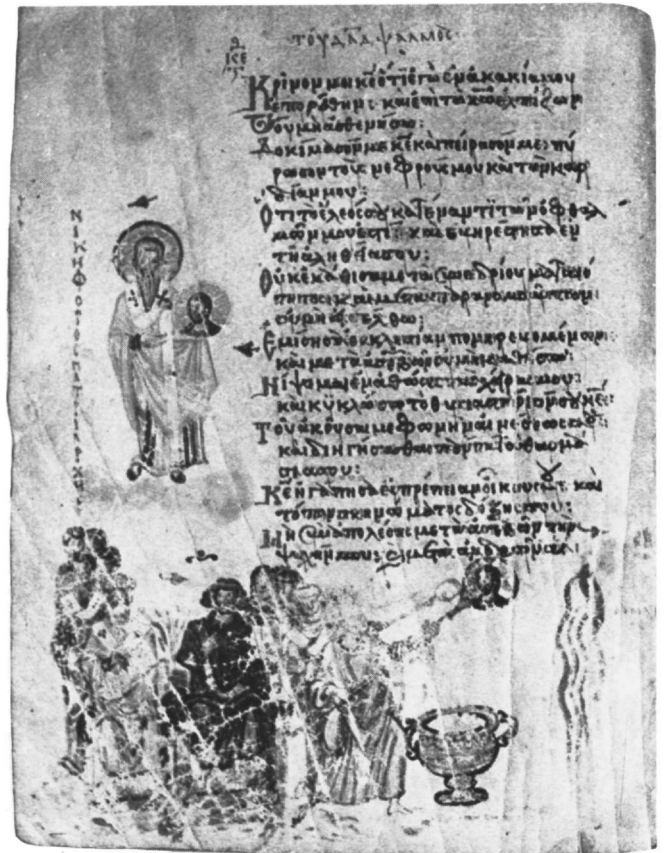 τοῦ δᾱδ ψαλμὸς
ΚΕ
Κρῖνόν μοι κε ὅτι ἐγὼ ἐν ἀκακία μου
ἐπορεύθην· καὶ ἐπὶ τῶ κω ἐλπίζων
οὐ μὴ ἀσθενήσω:
Δοκίμασόν με κε καὶ πείρασόν με· πύ
ρωσον τοὺς νεφρούς μου καὶ τὴν καρ
δίαν μου:
Ὅτι τὸ ἔλεός σου κατέναντι τῶν ὀφθαλ
μῶν μου ἐστί· καὶ εὐηρέστησα ἐν
τῆ ἀληθεία σου:
Οὐκ ἐκάθισα μετὰ συνεδρίου ματαιό
τητος· καὶ μετὰ παρανομούντων
οὐ μὴ εἰσέλθω:
Ἐμίσησα ἐκκλησίαν πονηρευομένων·
καὶ μετὰ ἀσεβῶν οὐ μὴ καθίσω:
Νίψομαι ἐν ἀθώοις τὰς χεῖράς μου·
καὶ κυκλώσω τὸ θυσιαστήριόν σου κε:
Τοῦ ἀκοῦσαί με φωνὴν αἰνέσεώς σου·
καὶ διηγήσασθαι πάντα τὰ θαυμά
σιά σου:
Κε ἠγάπησα εὐπρέπειαν οἴκου σου· καὶ
τόπον σκηνώματος δόξης σου:
Μὴ συναπολέσης μετὰ ἀσεβῶν τὴν
ψυχήν μου· καὶ μετὰ ἀνδρῶν αἱμά
ΝΙΚΗΦΟΡΟΣ ΠΑΤΡΙΑΡΧΗΣ